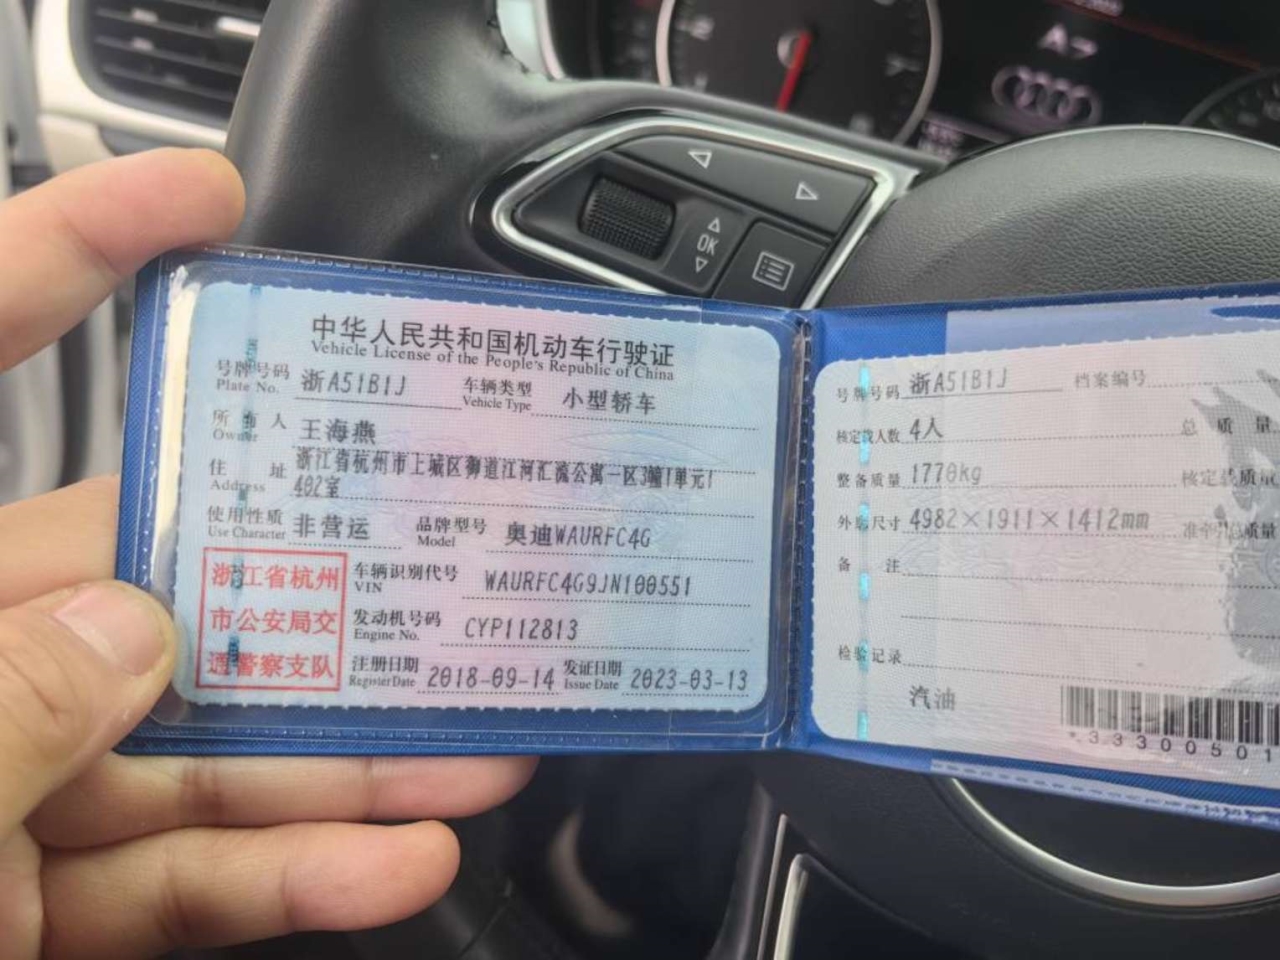 A7
OK
中华人民共和国机动车行驶证
Vehicle License of the People's Republic of China
号牌号码 浙A51B1J 车辆类型 小型轿车
Plate No. Vehicle Type
所有人 王海燕
Owner
住址 浙江省杭州市上城区御道江河汇流公寓一区3幢1单元1
Address 402室
使用性质 非营运 品牌型号 奥迪WAURFC4G
Use Character Model
浙江省杭州
市公安局交
通警察支队
车辆识别代号 WAURFC4G9JN100551
VIN
发动机号码 CYP112813
Engine No.
注册日期 2018-09-14 发证日期 2023-03-13
Register Date Issue Date
号牌号码 浙A51B1J 档案编号
核定载人数 4人 总质量
整备质量 1770kg 核定载质量
外廓尺寸 4982×1911×1412mm 准牵引总质量
备注
检验记录
汽油
*33300501